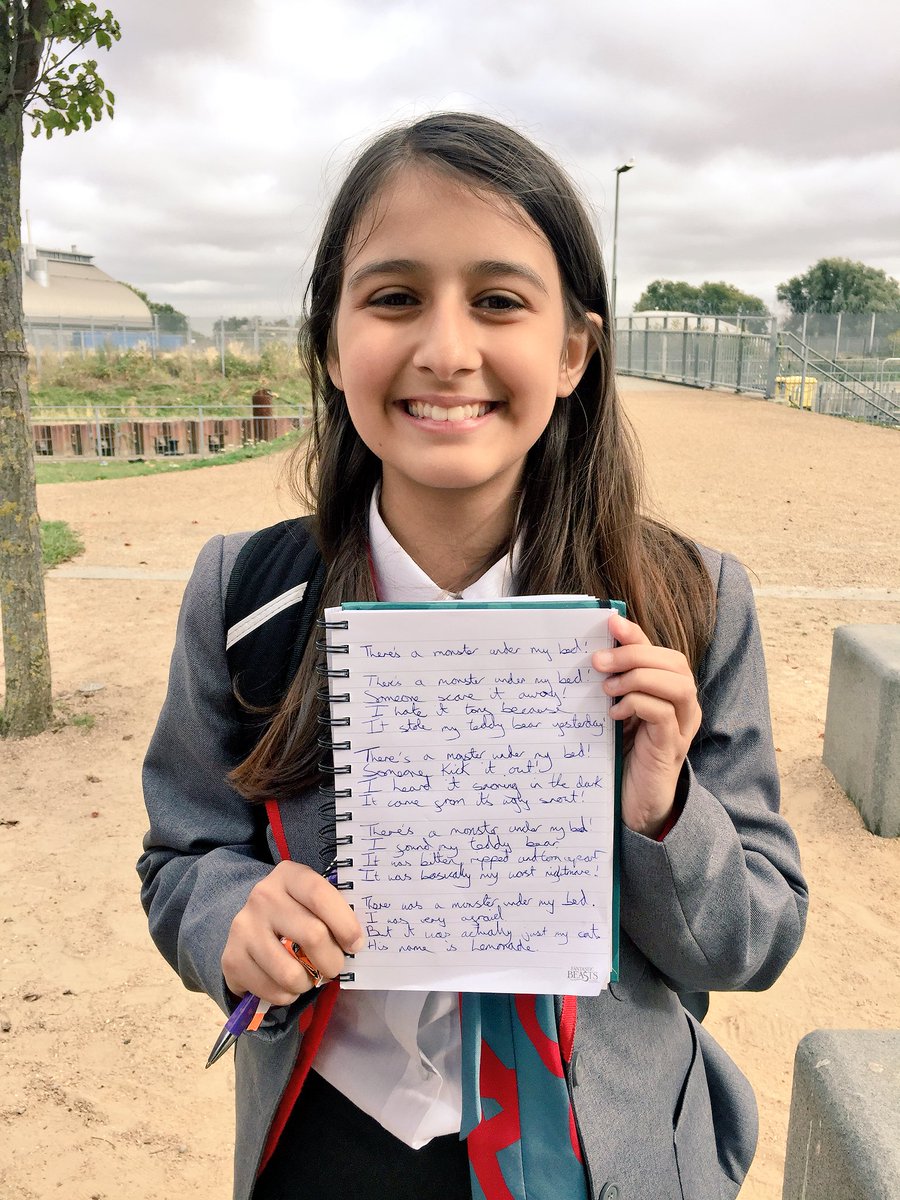 There's a monster under my bed!
There's a monster under my bed!
Someone scare it away!
I hate it tons because
It stole my teddy bear yesterday!
There's a monster under my bed!
Someone kick it out!
I heard it snoring in the dark
It came from its ugly snout!
There's a monster under my bed!
I found my teddy bear
It was bitten, ripped and torn apart
It was basically my worst nightmare!
There was a monster under my bed.
I was very afraid
But it was actually just my cat
His name is Lemonade.
FANTASTIC
BEASTS